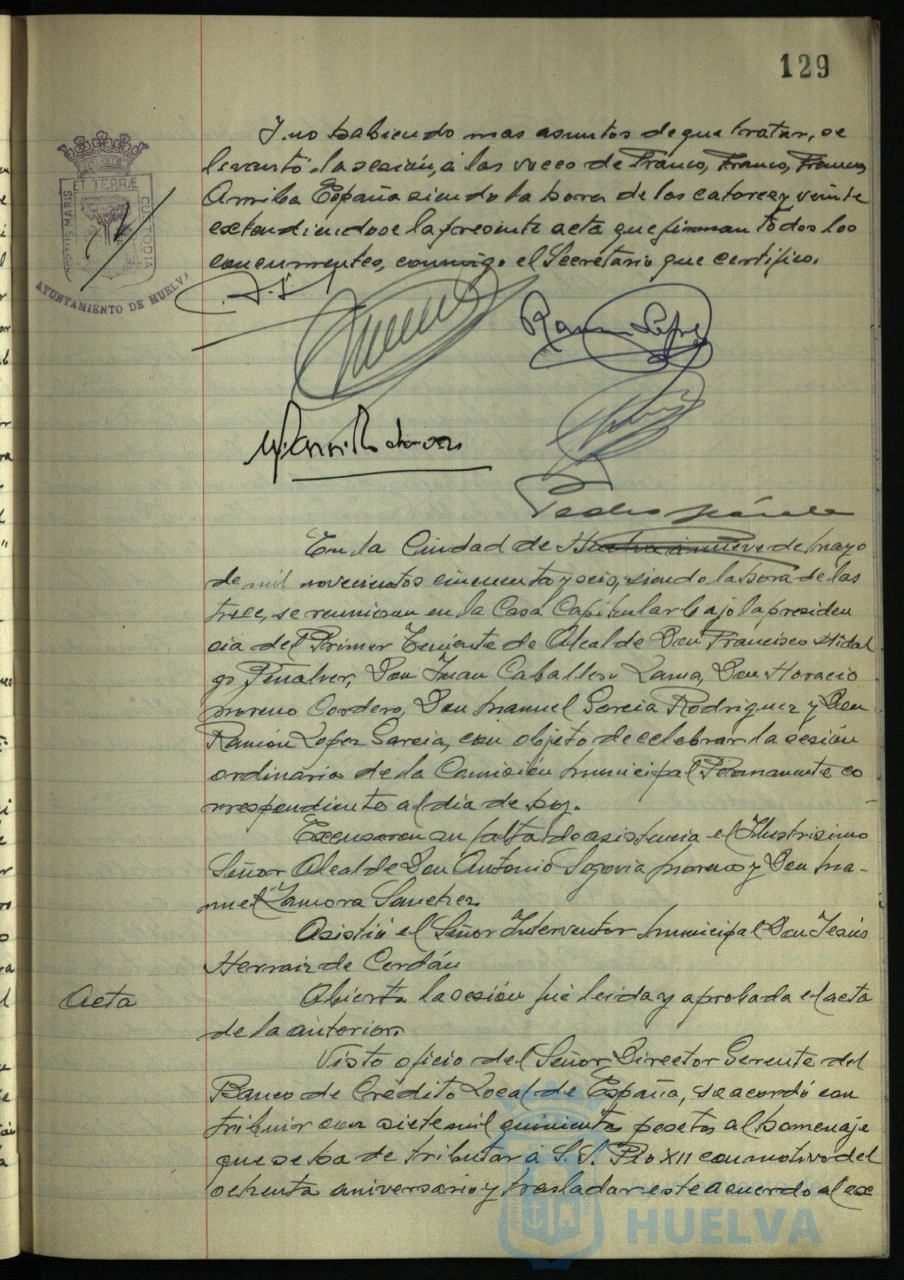 129
Y no habiendo mas asuntos de que tratar, se
levantó la sesión, a las voces de Franco, Franco, Franco,
Arriba España siendo la hora de las catorce y veinte
extendiendose la presente acta que firman todos los
concurrentes, conmigo el Secretario que certifico.
PORTUS MARIS ET TERRÆ CUSTODIA
AYUNTAMIENTO DE HUELVA
Ramón Lopez
Pedro
En la Ciudad de Huelva a nueve de mayo
de mil novecientos cincuenta y seis, siendo la hora de las
trece, se reunieron en la Casa Capitular bajo la presiden
cia del Primer Teniente de Alcalde Don Francisco Hidal
go Peñalver, Don Juan Caballero Lama, Don Horacio
Moreno Cordero, Don Manuel Garcia Rodriguez y Don
Ramón Lopez Garcia, con objeto de celebrar la sesión
ordinaria de la Comisión Municipal Permanente co
rrespondiente al día de hoy.
Excusaron su falta de asistencia el Ilustrisimo
Señor Alcalde Don Antonio Segovia Moreno y Don Ma-
nuel Zamora Sanchez
Asistió el Señor Interventor Municipal Don Jesús
Herraiz de Cerdán
Acta
Abierta la sesión fué leida y aprobada el acta
de la anterior.
Visto oficio del Señor Director Gerente del
Banco de Crédito Local de España, se acordó con
tribuir con siete mil quinientas pesetas al homenaje
que se ha de tributar a S.S. Pio XII con motivo del
ochenta aniversario y trasladar este acuerdo al ex
HUELVA